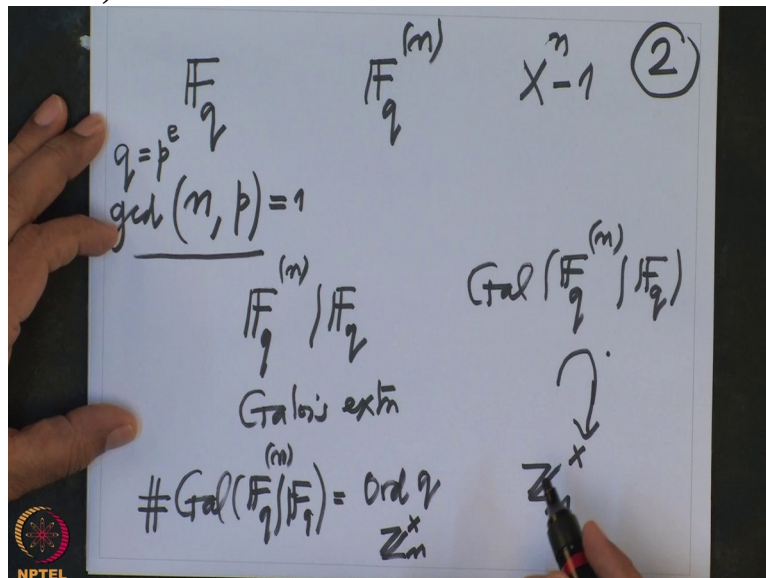 F_q F_q^(n) X^n - 1 ②
q = p^e
gcd (n, p) = 1
F_q^(n) | F_q Gal (F_q^(n) | F_q)
Galois extn
#Gal(F_q^(n) | F_q) = Ord q Z_n^×
Z_n^×
NPTEL